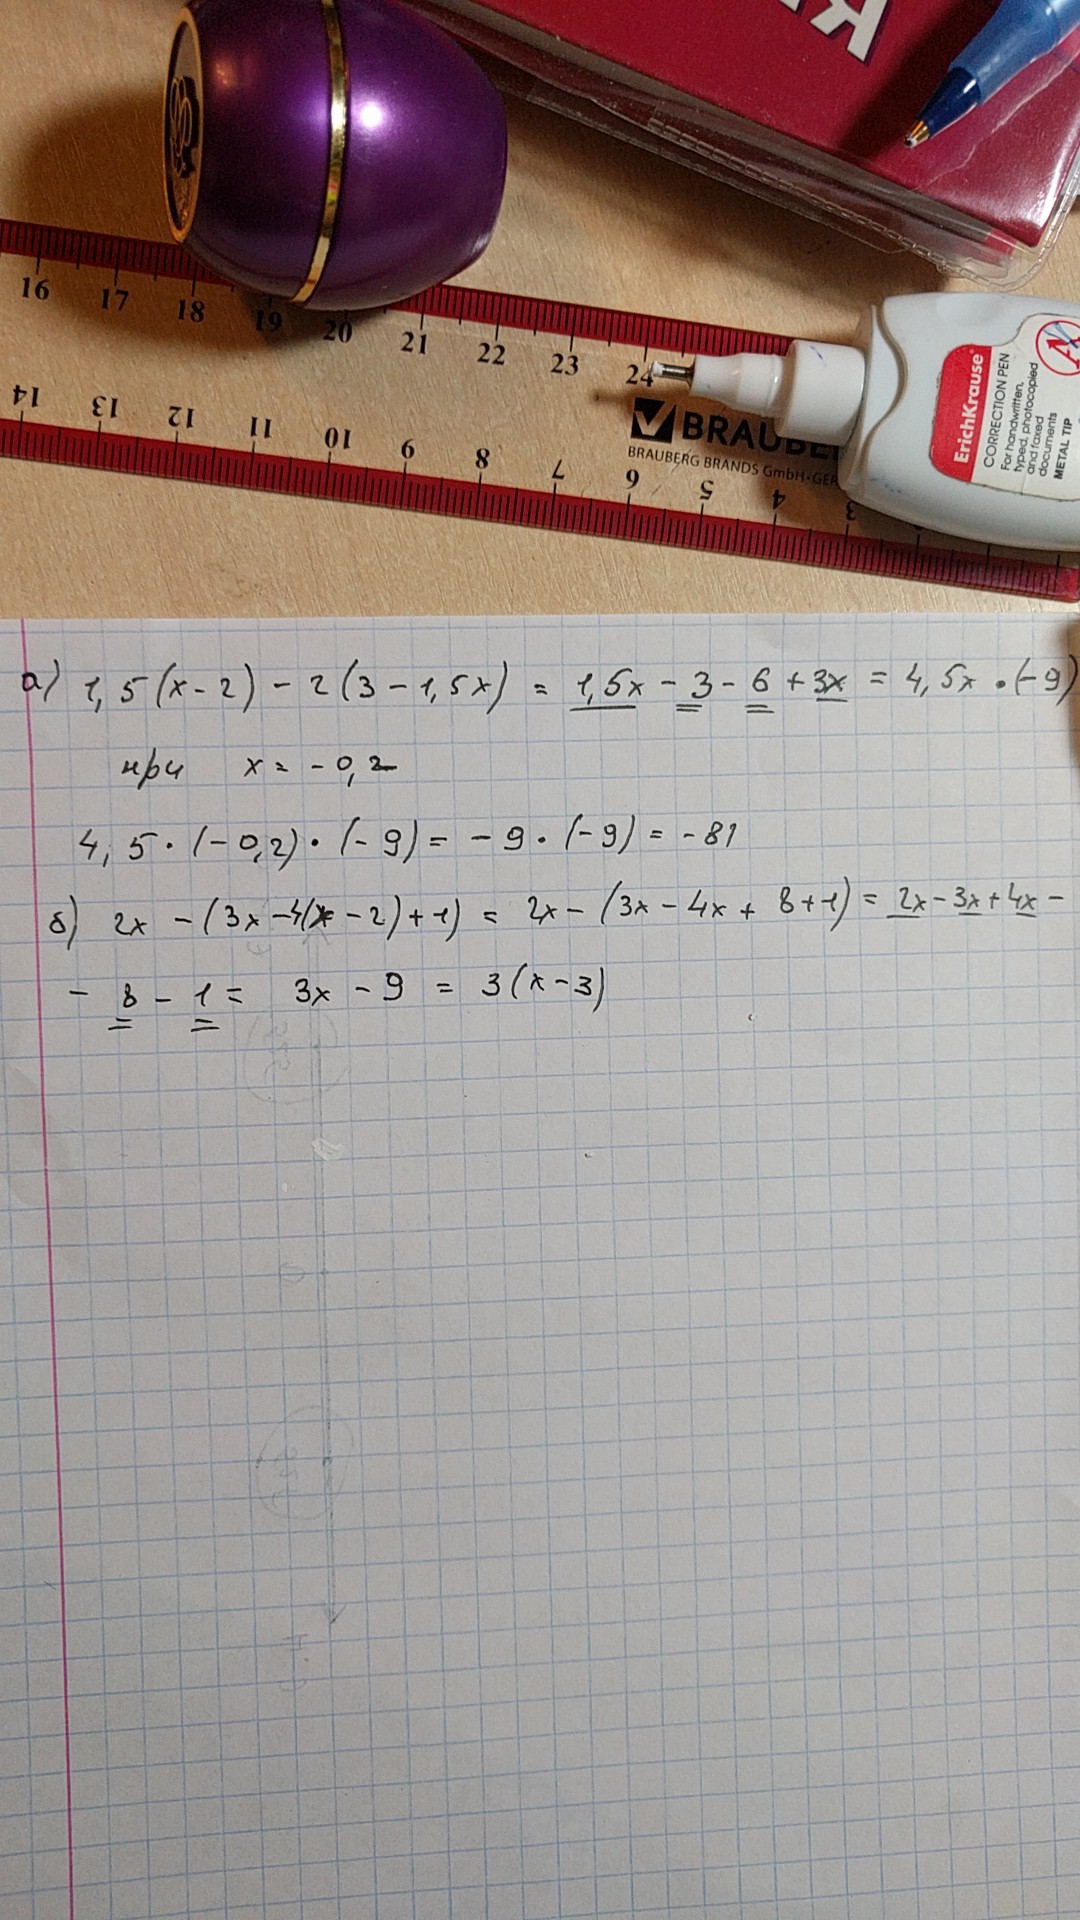 КЯ
16 17 18 19 20 21 22 23 24
14 13 12 11 10 9 8 7 6 5 4 3
BRAUBE
BRAUBERG BRANDS GmbH·GER
ErichKrause
CORRECTION PEN
For handwritten,
typed, photocopied
and faxed
documents
METAL TIP
а) 1,5(x-2) - 2(3-1,5x) = 1,5x - 3 - 6 + 3x = 4,5x · (-9)
при x = -0,2
4,5 · (-0,2) · (-9) = -9 · (-9) = -81
б) 2x - (3x - 4(x - 2) + 1) = 2x - (3x - 4x + 8 + 1) = 2x - 3x + 4x -
- 8 - 1 = 3x - 9 = 3(x-3)